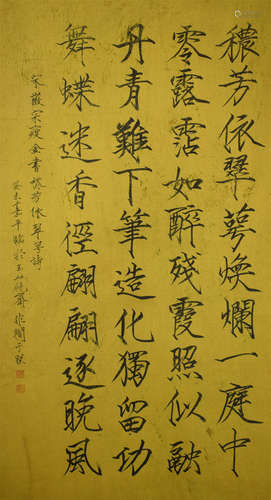 穠芳依翠萼煥爛一庭中
零露霑如醉殘霞照似融
丹青難下筆造化獨留功
舞蝶迷香徑翩翩逐晚風
宋徽宗瘦金書穠芳依翠萼詩
癸未嘉平臨於玉